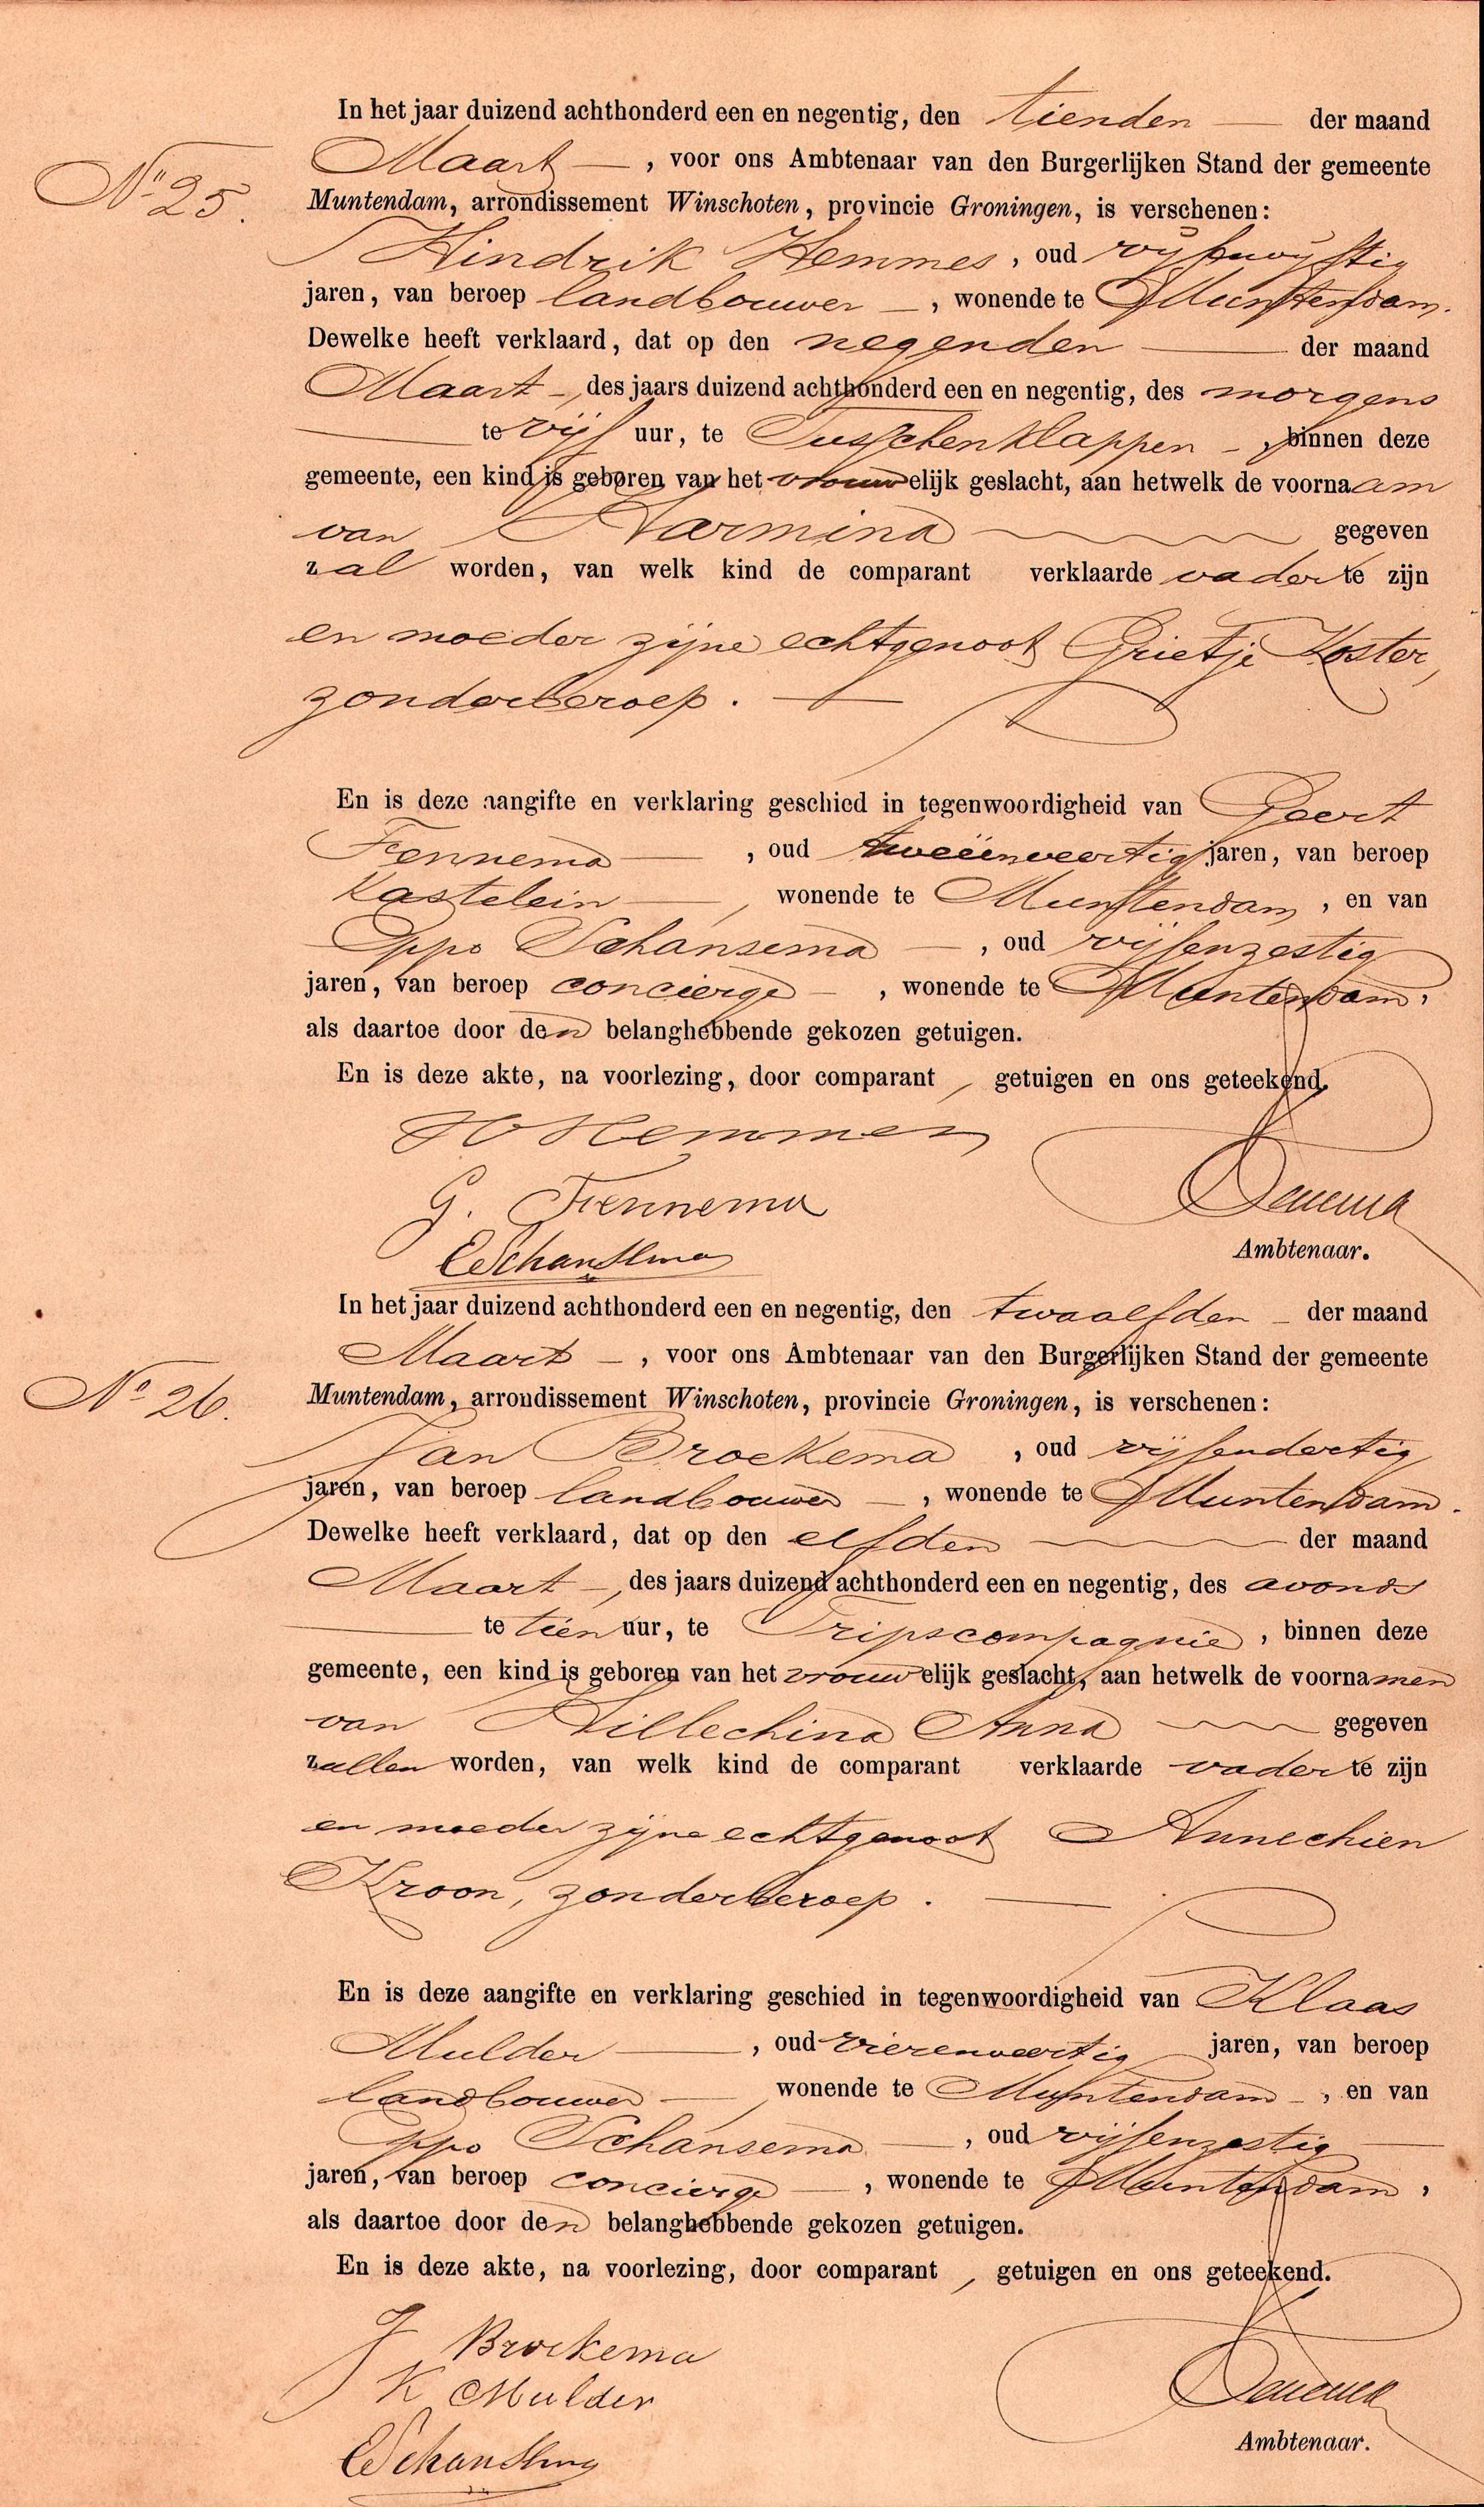 In het jaar duizend achthonderd een en negentig, den tienden der maand
Maart, voor ons Ambtenaar van den Burgerlijken Stand der gemeente
No 25.
Muntendam, arrondissement Winschoten, provincie Groningen, is verschenen:
Hindrik Hemmes, oud vijfenvijftig
jaren, van beroep landbouwer, wonende te Muntendam.
Dewelke heeft verklaard, dat op den negenden der maand
Maart, des jaars duizend achthonderd een en negentig, des morgens
te vijf uur, te Tusschenklappen, binnen deze
gemeente, een kind is geboren van het vrouwelijk geslacht, aan hetwelk de voornaam
van Harmina gegeven
zal worden, van welk kind de comparant verklaarde vader te zijn
en moeder zijne echtgenoot Grietje Koster,
zonder beroep.
En is deze aangifte en verklaring geschied in tegenwoordigheid van Geert
Fennema, oud tweeënveertig jaren, van beroep
Kastelein, wonende te Muntendam, en van
Eppo Schansema, oud vijfenzestig
jaren, van beroep concierge, wonende te Muntendam,
als daartoe door den belanghebbende gekozen getuigen.
En is deze akte, na voorlezing, door comparant, getuigen en ons geteekend.
H Hemmes
G. Fennema
ESchansema
Ambtenaar.
In het jaar duizend achthonderd een en negentig, den twaalfden der maand
Maart, voor ons Ambtenaar van den Burgerlijken Stand der gemeente
No 26.
Muntendam, arrondissement Winschoten, provincie Groningen, is verschenen:
Jan Broekema, oud vijfendertig
jaren, van beroep landbouwer, wonende te Muntendam.
Dewelke heeft verklaard, dat op den elfden der maand
Maart, des jaars duizend achthonderd een en negentig, des avonds
te tien uur, te Tripscompagnie, binnen deze
gemeente, een kind is geboren van het vrouwelijk geslacht, aan hetwelk de voornamen
van Hillechina Anna gegeven
zullen worden, van welk kind de comparant verklaarde vader te zijn
en moeder zijne echtgenoot Annechien
Kroon, zonder beroep.
En is deze aangifte en verklaring geschied in tegenwoordigheid van Klaas
Mulder, oud vierenveertig jaren, van beroep
landbouwer, wonende te Muntendam, en van
Eppo Schansema, oud vijfenzestig
jaren, van beroep concierge, wonende te Muntendam,
als daartoe door den belanghebbende gekozen getuigen.
En is deze akte, na voorlezing, door comparant, getuigen en ons geteekend.
J Broekema
K Mulder
ESchansema
Ambtenaar.